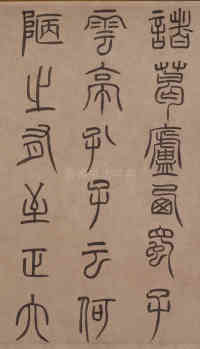 諸葛廬西蜀子
雲亭孔子云何
陋之有至正六